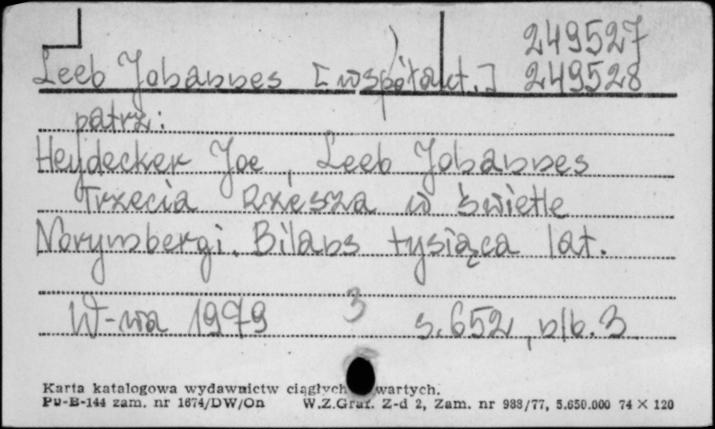 249527
Leeb Johannes [współaut.] 249528
patrz:
Heydecker Joe, Leeb Johannes
Trzecia Rzesza w świetle
Norymbergi. Bilans tysiąca lat.
W-wa 1979 3 s. 652, nlb. 3
Karta katalogowa wydawnictw ciągłych wartych.
Pu-B-144 zam. nr 1674/DW/On W.Z.Graf. Z-d 2, Zam. nr 988/77, 5.650.000 74 X 120